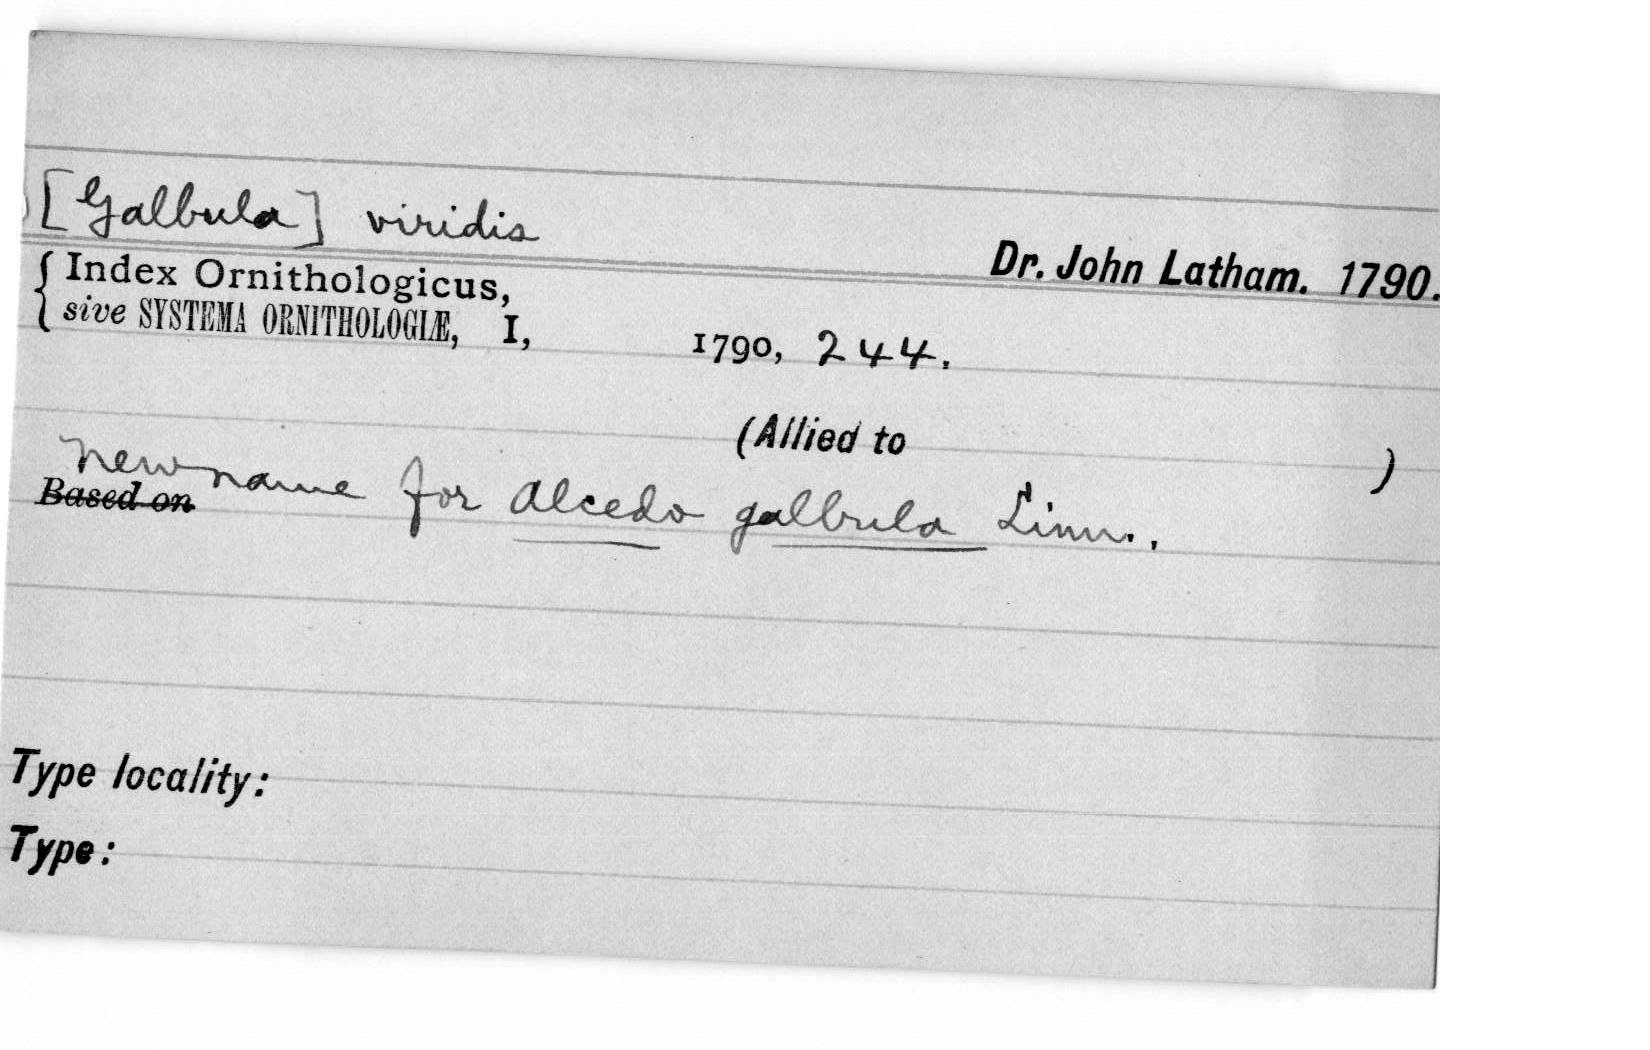 [Galbula] viridis
Dr. John Latham. 1790.
Index Ornithologicus,
sive SYSTEMA ORNITHOLOGIÆ, I, 1790, 244.
(Allied to )
New name for Alcedo galbula Linn.,
Based on
Type locality:
Type: